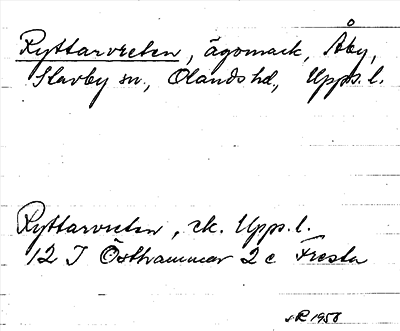 Ryttarvreten, ägomark, Åby,
Stavby sn., Olands hd., Upps. l.
Ryttarvreten, ek. Upps. l.
12 I Östhammar 2 c Fresta
1958